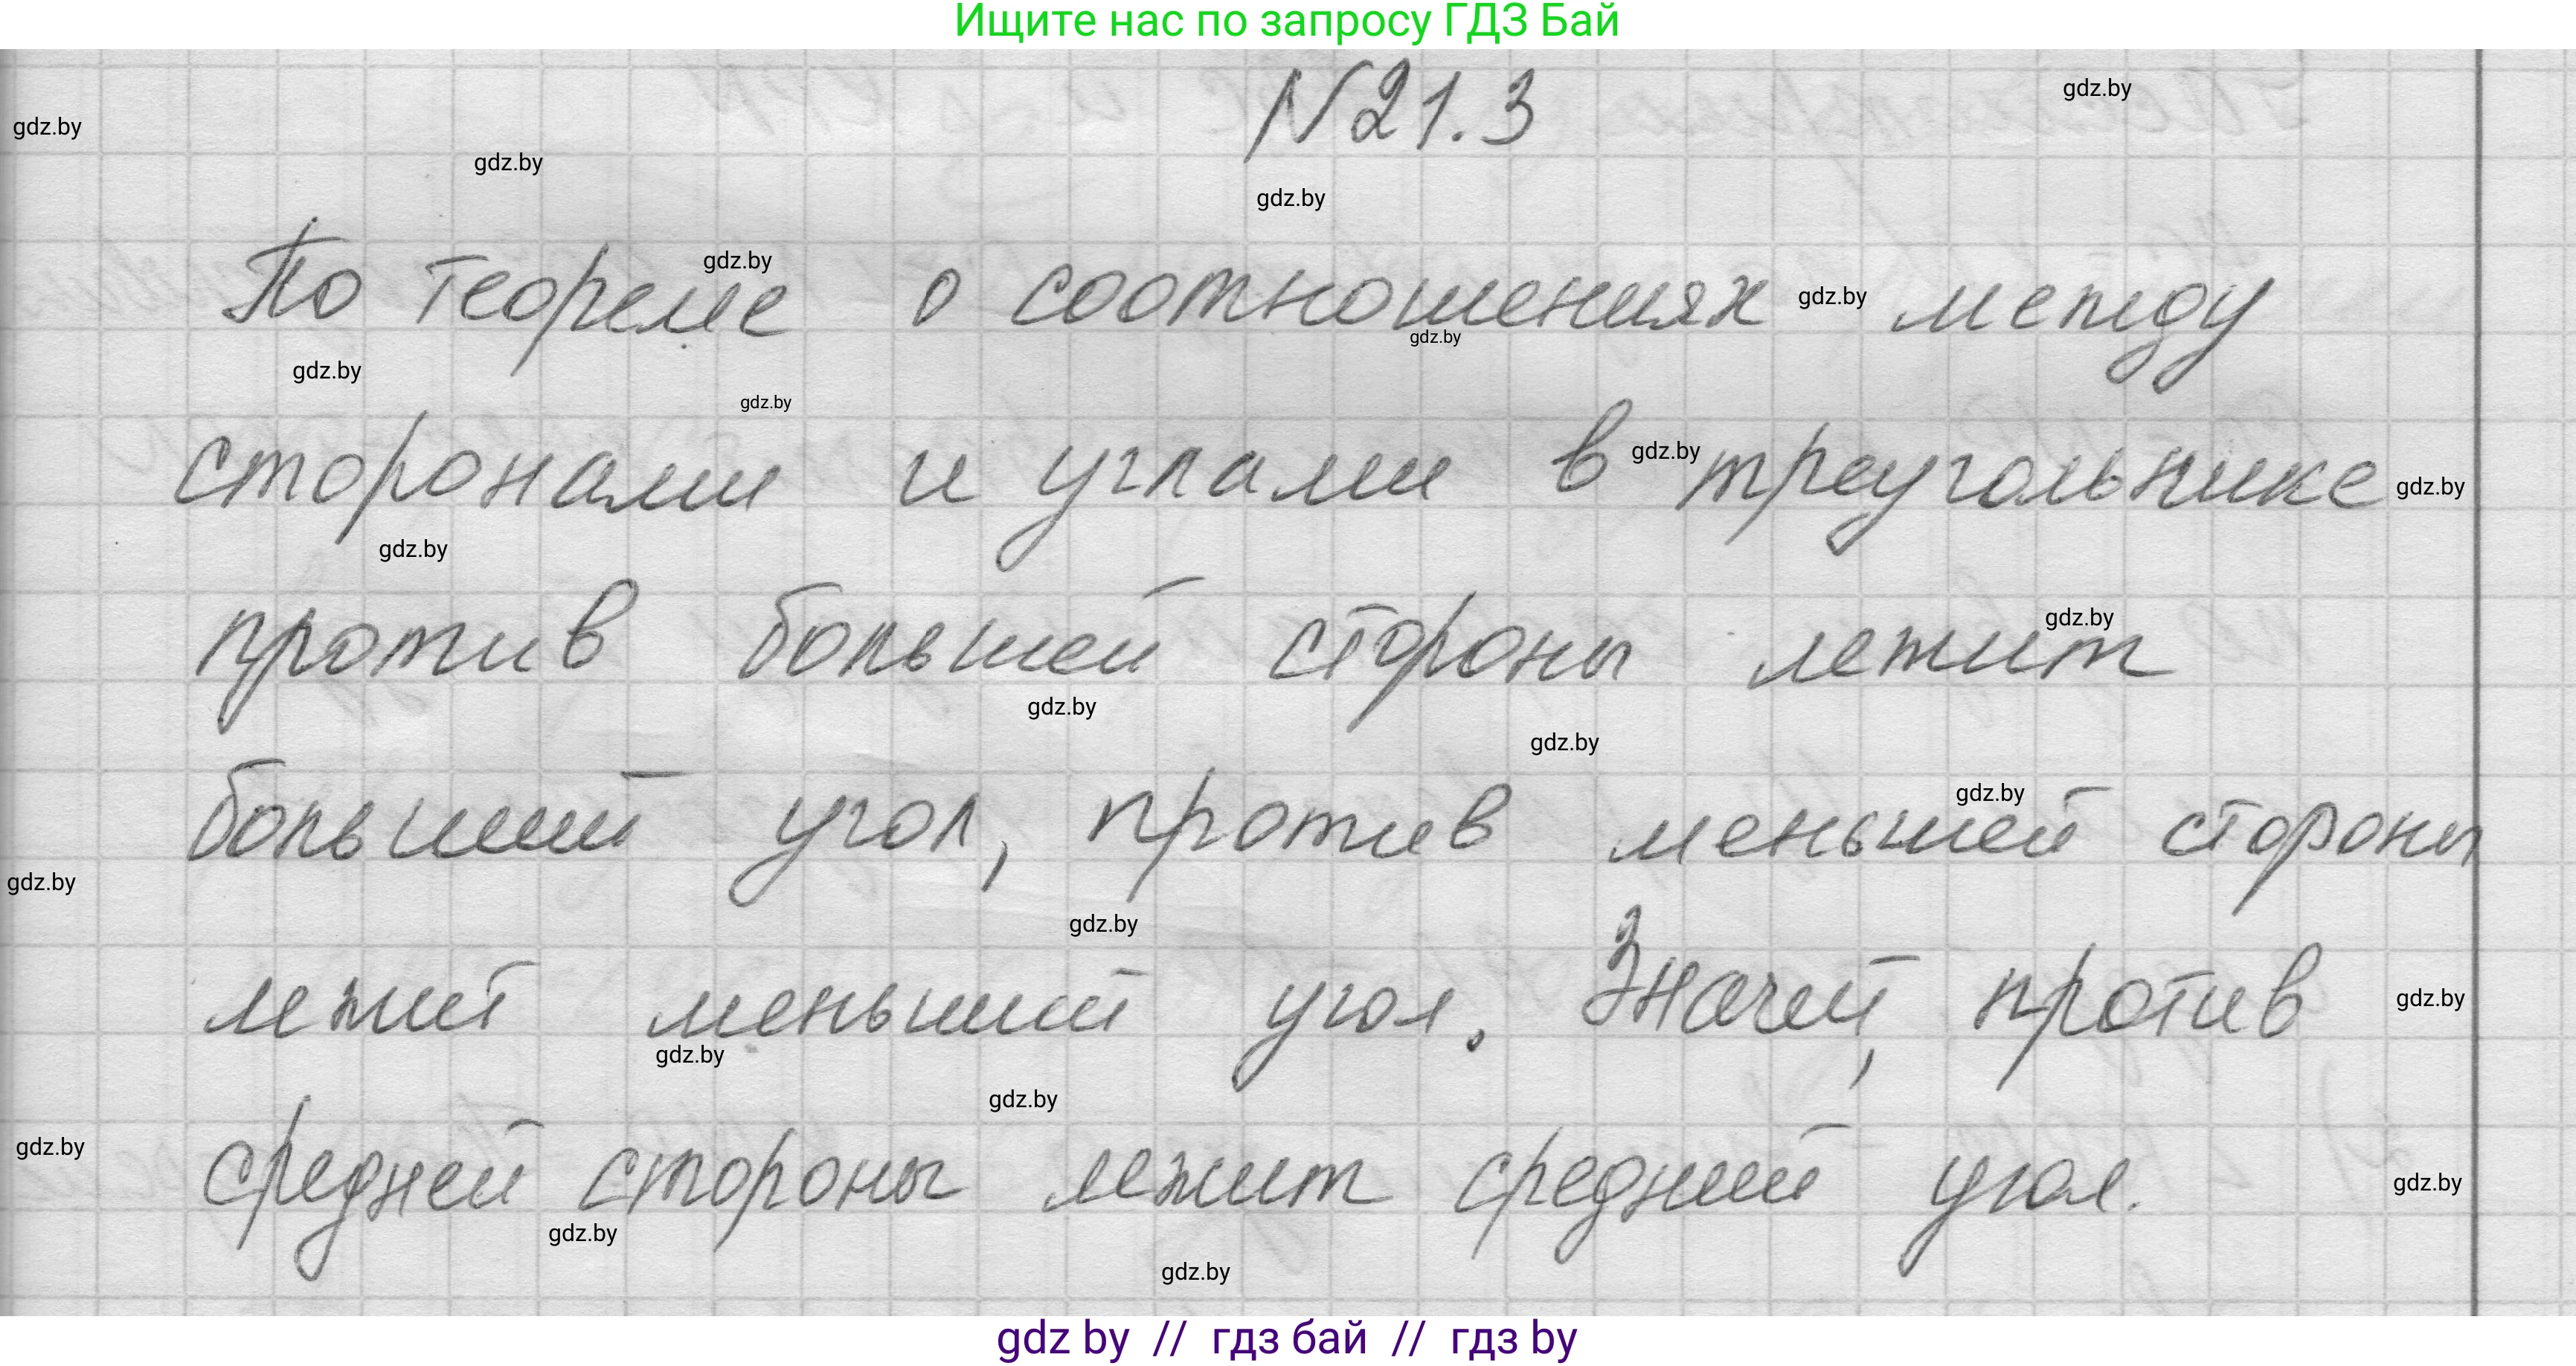 Ищите нас по запросу ГДЗ Бай
N21.3
gdz.by
gdz.by
gdz.by
gdz.by
По теореме о соотношениях между
gdz.by
gdz.by
gdz.by
gdz.by
gdz.by
сторонами и углами в треугольнике
gdz.by
gdz.by
gdz.by
против большей стороны лежит
gdz.by
gdz.by
gdz.by
больший угол, против меньшей стороны
gdz.by
gdz.by
gdz.by
лежит меньший угол. Значит, против
gdz.by
gdz.by
gdz.by
средней стороны лежит средний угол.
gdz.by
gdz.by
gdz.by
gdz.by
gdz by // гдз бай // гдз by